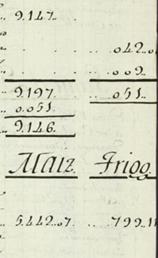 9.147.
.042.0
.002.
9.197. .051.
0.051.
9.146.
Maiz. Frigo
5.442.07. 799.11